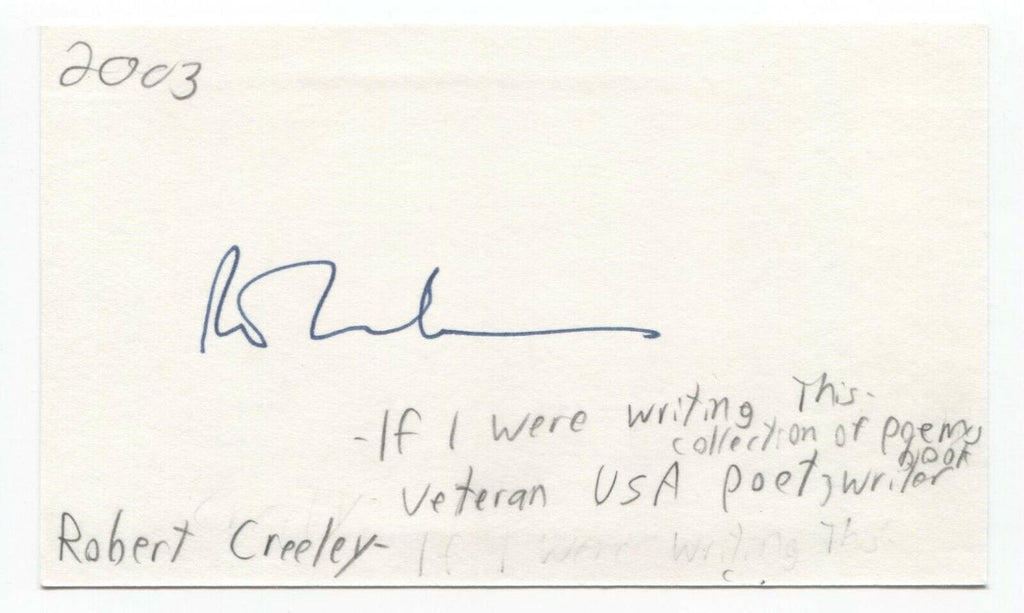 2003
-If I were writing This-
collection of poems
book
veteran USA poet, writer
Robert Creeley-
If I were writing This